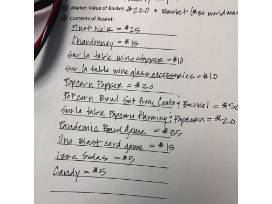 Market Value of Basket: $220 + basket ($30 world mar
Contents of Basket:
Pinot Noir - $25
Chardonnay - $15
Sur la table wine stoppers - $10
Sur la table wine glass accessories - $10
Popcorn Popper - $20
Popcorn Bowl Set from Crate & Barrel - $50
Sur la table Popcorn flavoring & Popcorn - $20
Pandemic Board game - $35
Uno Blast card game - $15
Izze Sodas - $5
Candy - $5